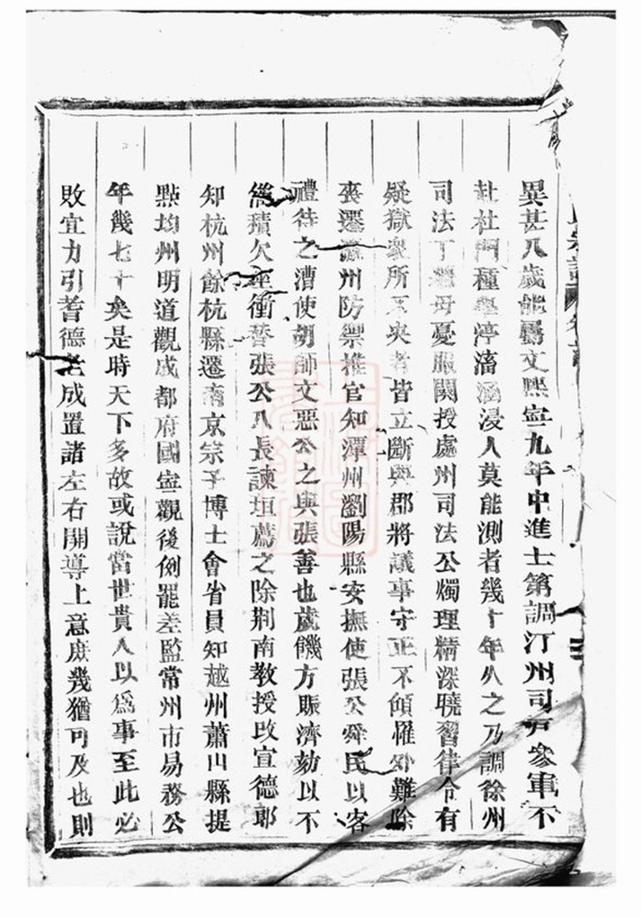 異甚八歲能屬文熙寧九年中進士第調汀州司戶參軍不
赴杜門種學渟滀涵浸人莫能測者幾十年久之乃調徐州
司法丁繼母憂服闋授處州司法公燭理精深曉習律令有
疑獄衆所不決者皆立斷與郡將議事守正不傾罹外難除
喪遷瀛州防禦推官知潭州瀏陽縣安撫使張公舜民以客
禮待之漕使胡師文惡公之與張善也歲饑方賑濟劾以不
催積欠坐衝替張公入長諫垣薦之除荆南教授改宣德郎
知杭州餘杭縣遷南京宗子博士會省員知越州蕭山縣提
點均州明道觀成都府國寧觀後例罷差監常州市易務公
年幾七十矣是時天下多故或說當世貴人以爲事至此必
敗宜力引耆德老成置諸左右開導上意庶幾猶可及也則